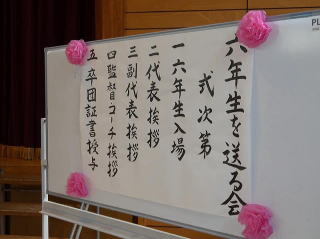 六年生を送る会
式次第
一 六年生入場
二 代表挨拶
三 副代表挨拶
四 監督コーチ挨拶
五 卒団証書授与